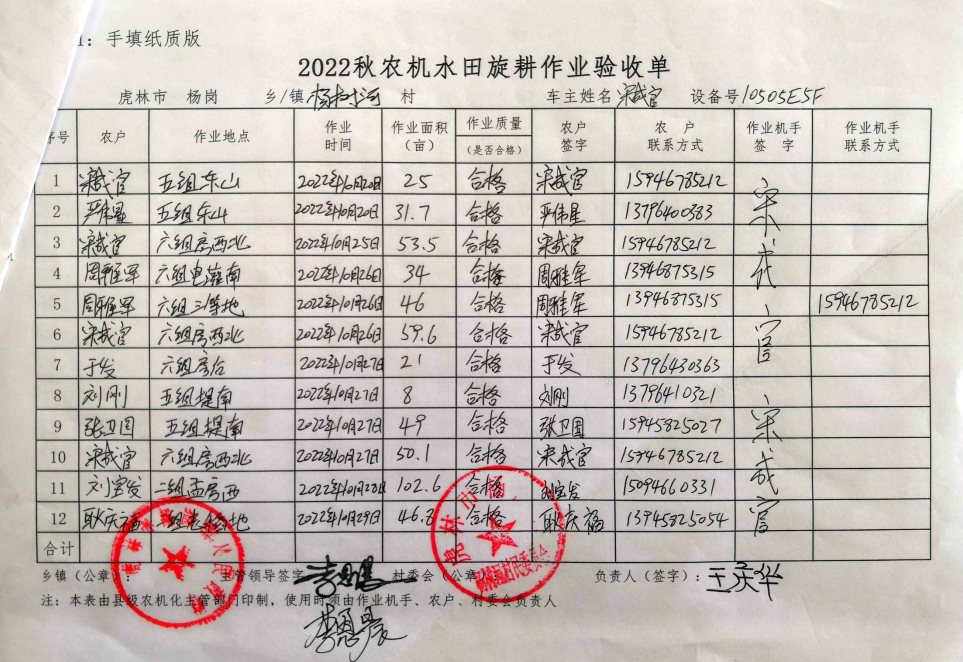 1：手填纸质版
2022秋农机水田旋耕作业验收单
虎林市 杨岗 乡/镇 杨树河 村 车主姓名 宋成官 设备号 10505E5F
序号 农户 作业地点 作业时间 作业面积（亩） 作业质量（是否合格） 农户签字 农户联系方式 作业机手签字 作业机手联系方式
1 宋成官 五组东山 2022年10月20日 25 合格 宋成官 15946785212
2 严伟星 五组东山 2022年10月20日 31.7 合格 严伟星 13796400383
3 宋成官 六组房西北 2022年10月25日 53.5 合格 宋成官 15946785212
4 周雅军 六组电锥南 2022年10月26日 34 合格 周雅军 13946875315
5 周雅军 六组三等地 2022年10月26日 46 合格 周雅军 13946875315 15946785212
6 宋成官 六组房西北 2022年10月26日 59.6 合格 宋成官 15946785212
7 于发 六组房后 2022年10月27日 21 合格 于发 13796430363
8 刘刚 五组堤南 2022年10月27日 8 合格 刘刚 13796410321
9 张卫国 五组堤南 2022年10月27日 49 合格 张卫国 15945825027
10 宋成官 六组房西北 2022年10月27日 50.1 合格 宋成官 15946785212
11 刘宝发 二组 房西 2022年10月28日 102.6 合格 刘宝发 15094660331
12 耿庆福 2022年10月29日 46.8 合格 耿庆福 13945825054
宋成官
宋成官
合计
乡镇（公章）： 主管领导签字 村委会（公章） 负责人（签字）：王庆华
注：本表由县级农机化主管部门印制，使用时须由作业机手、农户、村委会负责人
虎林市
村民委员会